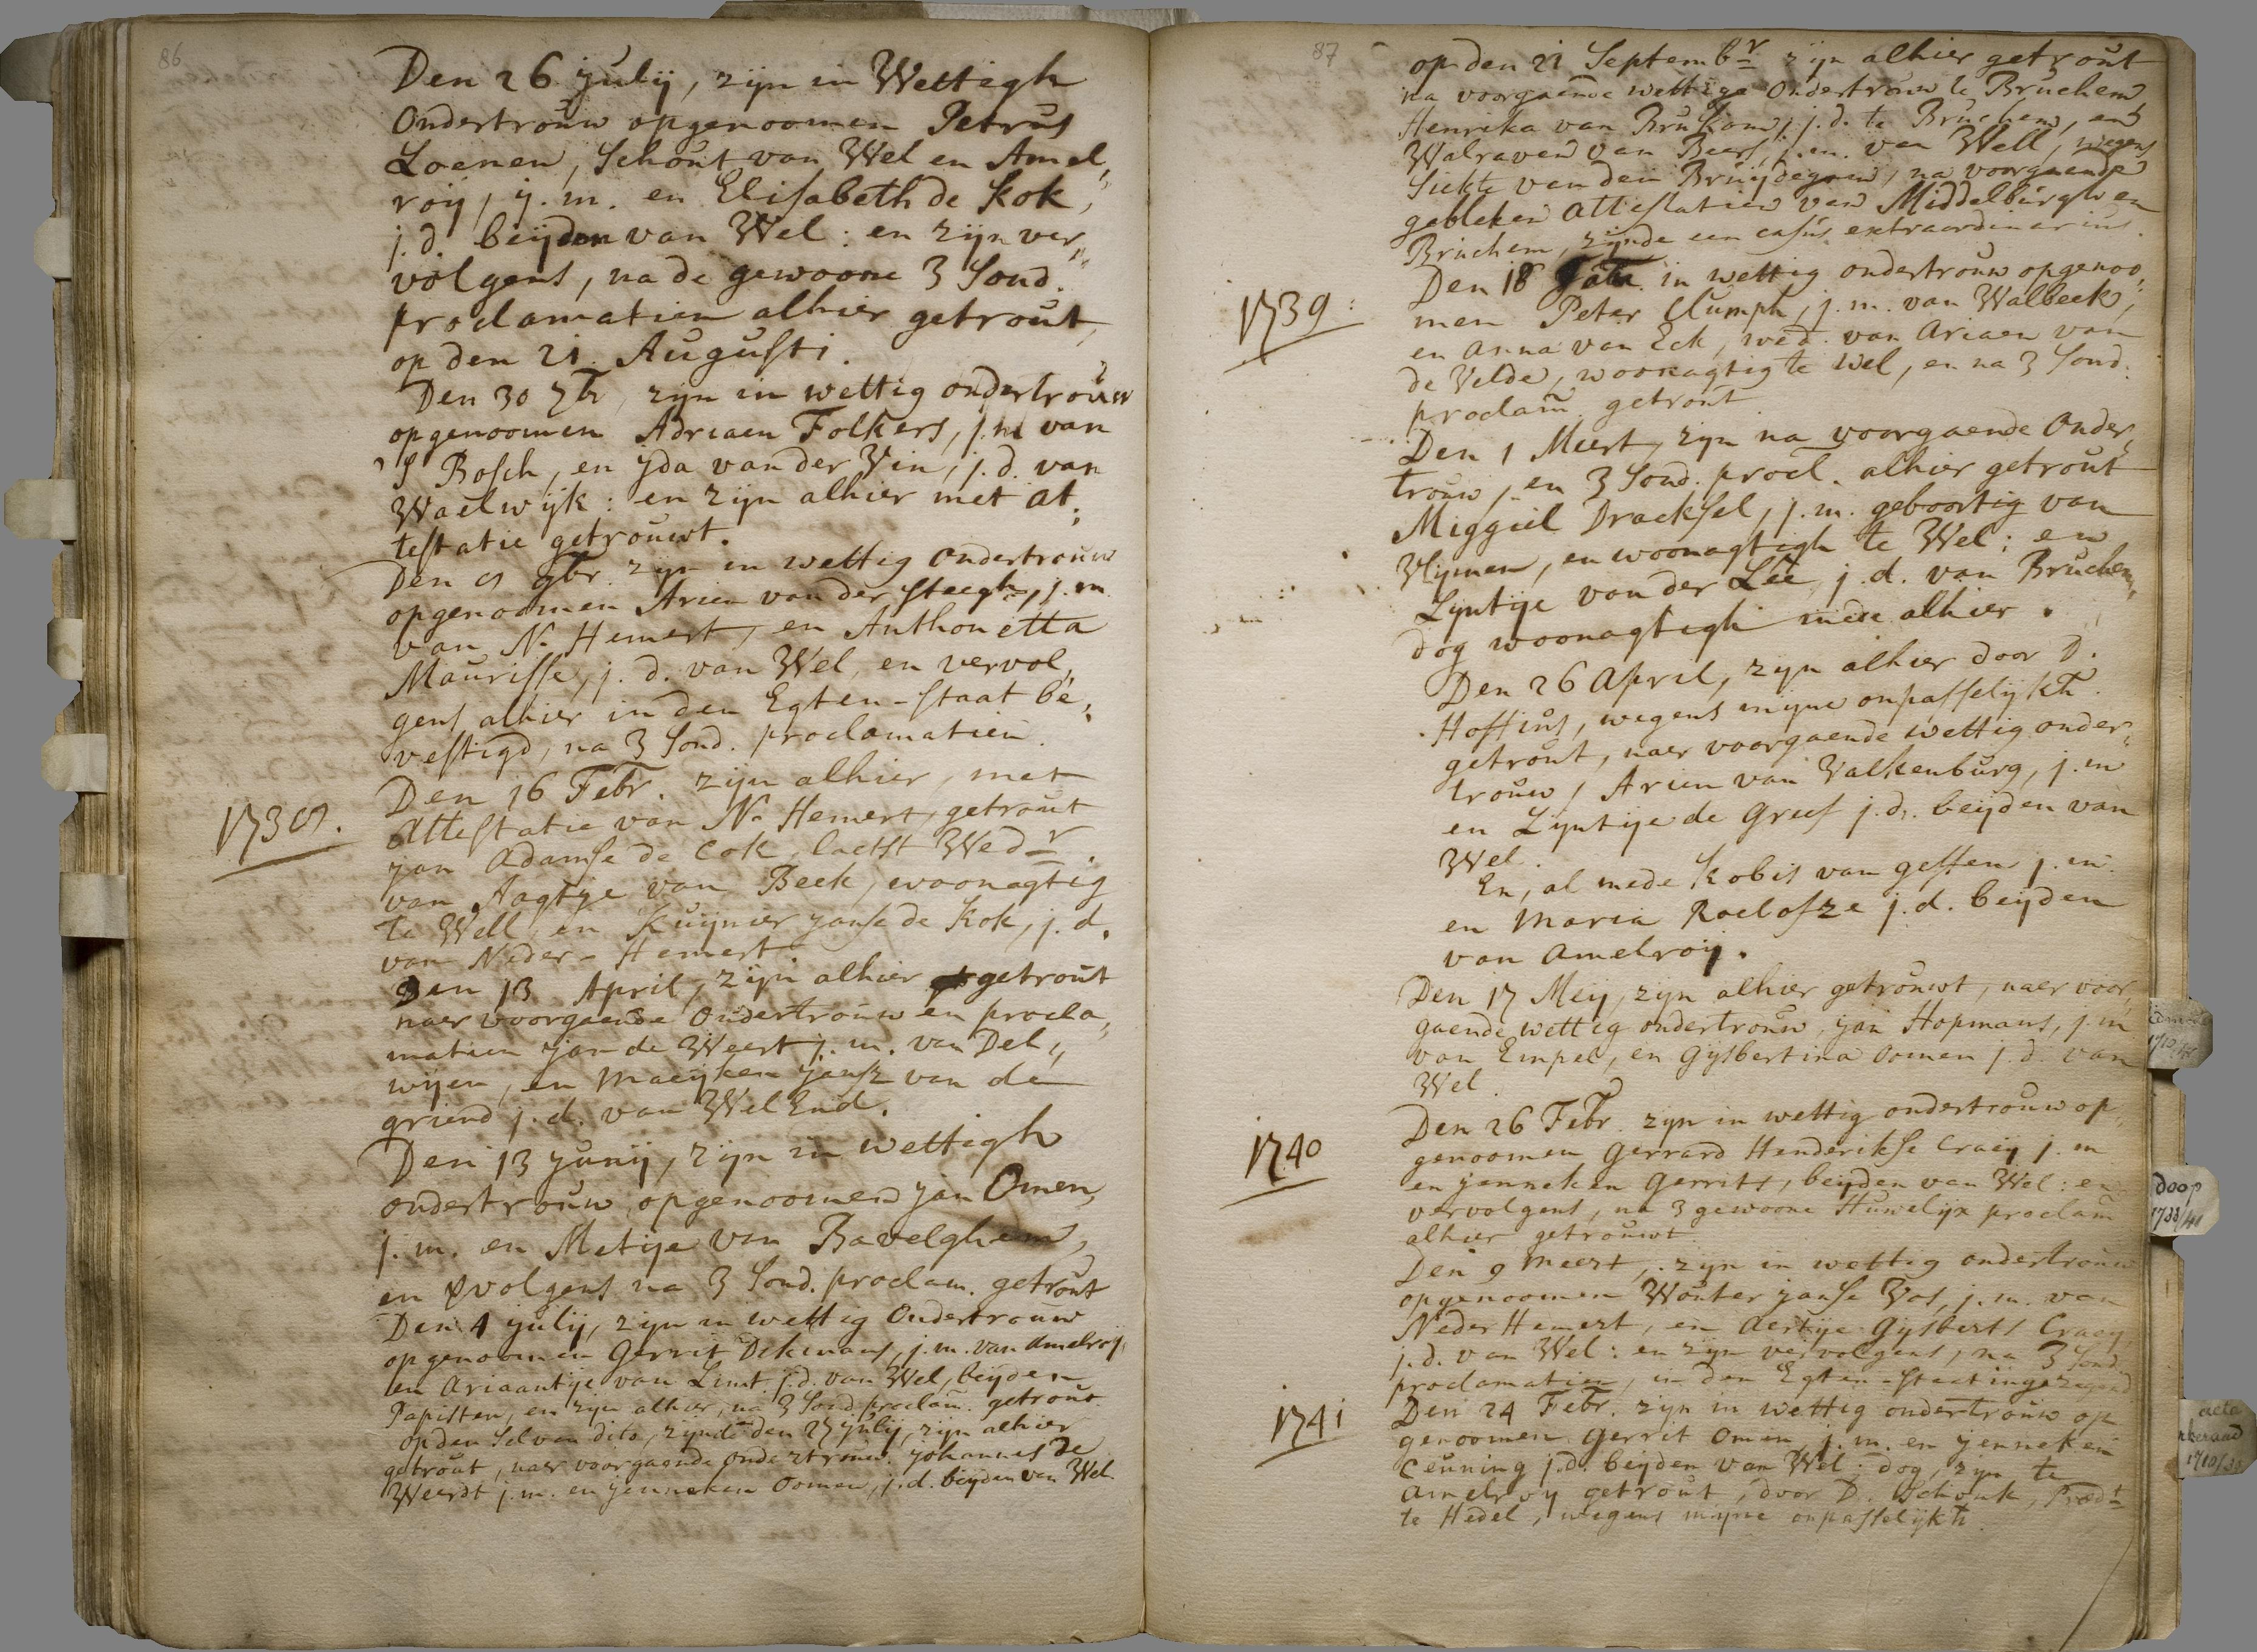 86
Den 26 julij, zijn in Wettigh
Ondertrouw opgenoomen Petrus
Loenen, Schout van Wel en Amel„
roij, j. m. en Elisabeth de Kok,
j. d. beijden van Wel: en zijn ver„
volgens, na de gewoone 3 Sond.
proclamatien alhier getrout,
op den 21. Augusti.
Den 30 7br, zijn in wettig ondertrouw
opgenoomen Adriaen Folkers, j. m van
'S Bosch, en Yda van der Vin, j. d. van
Waelwijk: en zijn alhier met at„
testatie getrouwt.
Den 8 9br. zijn in wettig Ondertrouw
opgenoomen Arien van der Steegh, j. m
van N. Hemert, en Anthonetta
Maurisse, j. d. van Wel, en vervol„
gens alhier in den Egten-staat be„
vestigd, na 3 Sond. proclamatien.
1738.
Den 16 Febr. zijn alhier, met
Attestatie van N. Hemert, getrout
jan Adamse de Cok, laetst Wedr
van Aagtje van Beek, woonagtig
te Well en Kuijnier janse de Kok, j. d.
van Neder-Hemert
Den 13 April, zijn alhier getrout
naer voorgaende Ondertrouw en procla„
matien jan de Weert j. m. van Del„
wijen, en Maeijken jansz van de
griend j. d. van Wel End.
Den 13 junij, zijn in wettigh
ondertrouw opgenoomen jan Omen,
j. m. en Metije van Bavelghem,
en vvolgens na 3 Sond. proclam. getrout
Den 4 julij, zijn in wettig Ondertrouw
opgenoomen Gerrit Dekmans, j. m. van Amelroij,
en Ariaantje van Lint j. d. van Wel, beijden
Papisten, en zijn alhier, na 3 Sond proclam. getrout.
op den Selven dito, zijnde den 27 julij, zijn alhier
getrout, naer voorgaende ondertrouw. Johannes De
Weerdt j. m. en jenneken Oomen, j. d. beijden van Wel.
87
op den 21 Septembr zijn alhier getrout
na voorgaende wettige Ondertrouw te Bruchem
Henrika van Bruksom, j. d. te Bruchem, en
Walraven van Beers, j. m. van Well, wegens
Siekte van den Bruijdegom, na voorgaende
gebleken attestatien van Middelburgh en
Bruchem, zijnde een casus extraordinarius.
1739:
Den 18 Febr. in wettig ondertrouw opgenoo„
men Peter Clumph, j. m. van Walbeek,
en Anna van Eck, wed. van Ariaen van
de Velde, woonagtig te Wel, en na 3 Sond.
proclam. getrout
Den 1 Meert, zijn na voorgaende Onder„
trouw, en 3 Sond. procl. alhier getrout
Miggiel Dracksel, j. m. geboortig van
Vlijmen, en woonagtigh te Wel: en
Lijntije van der Lee, j. d. van Bruchem,
dog woonagtigh mede alhier.
Den 26 April, zijn alhier door D.
Hoffius, wegens mijne onpasselijkh.
getrout, naer voorgaende wettig onder„
trouw, Arien van Valkenburg, j. m
en Lijntije de Greef j. d. beijden van
Wel.
En, al mede Kobis van gessen j. m.
en Maria Roelofze j. d. beijden
van Amelroij.
Den 17 Meij, zijn alhier getrouwt, naer voor„
gaende wettig ondertrouw, jan Hopmans, j. m
van Empel, en Gijsbertina Oomen j. d. van
Wel.
1740
Den 26 Febr. zijn in wettig ondertrouw op„
genoomen Gerrard Henderikse Craeij j. m
en jenneken Gerrits, beijden van Wel: en
vervolgens, na 3 gewoone Huwelijx proclam
alhier getrouwt.
Den 9 Meert, zijn in wettig ondertrouw
opgenoomen Wouter janse Vos, j. m. van
Neder Hemert, en Aertije Gijsberts Craeij,
j. d. van Wel: en zijn vervolgens, na 3 Sond.
proclamatien, in den Egten-Staet ingezegend
1741
Den 24 Febr. zijn in wettig ondertrouw op
genoomen Gerrit Omen j. m. en jenneken
Ceuning j. d. beijden van Wel; dog, zijn te
Amelroij getrout, door D. Schonk, Predt
te Hedel, wegens mijne onpasselijkh.
doop
1738/41
acta
kerraad